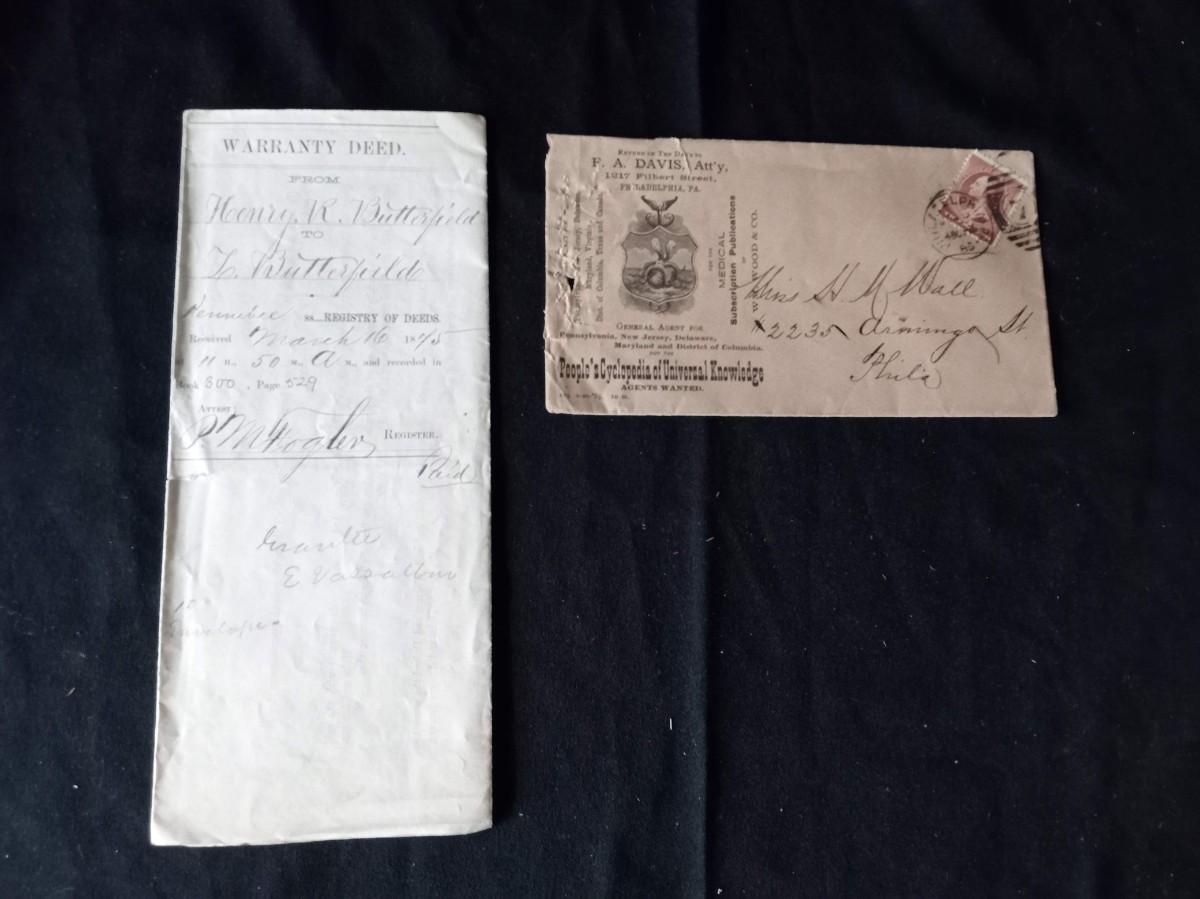 WARRANTY DEED.
FROM
Henry R. Butterfield
TO
Z. Butterfield
Kennebec ss.—REGISTRY OF DEEDS.
Received March 16 1875
at 11 H., 50 M., A M., and recorded in
Book 300, Page 529
ATTEST:
P M Fogler REGISTER.
Paid
Grantee
E Vassalboro
Envelope
RETURN IN TEN DAYS TO
F. A. DAVIS, Att'y,
1217 Filbert Street,
PHILADELPHIA, PA.
FOR THE
MEDICAL
Subscription Publications
OF
WM. WOOD & CO.
GENERAL AGENT FOR
Pennsylvania, New Jersey, Delaware,
Maryland and District of Columbia.
FOR THE
People's Cyclopedia of Universal Knowledge
AGENTS WANTED.
Miss H M Wall
#2235 Armingo St
Phila